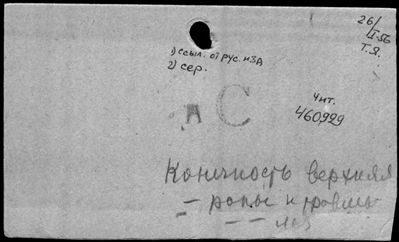 26/
II-56
Т.Я.
1) ссыл. от рус. изд
2) сер.
АС
Чит.
460929
Конечность верхняя
– раны и травмы
– –